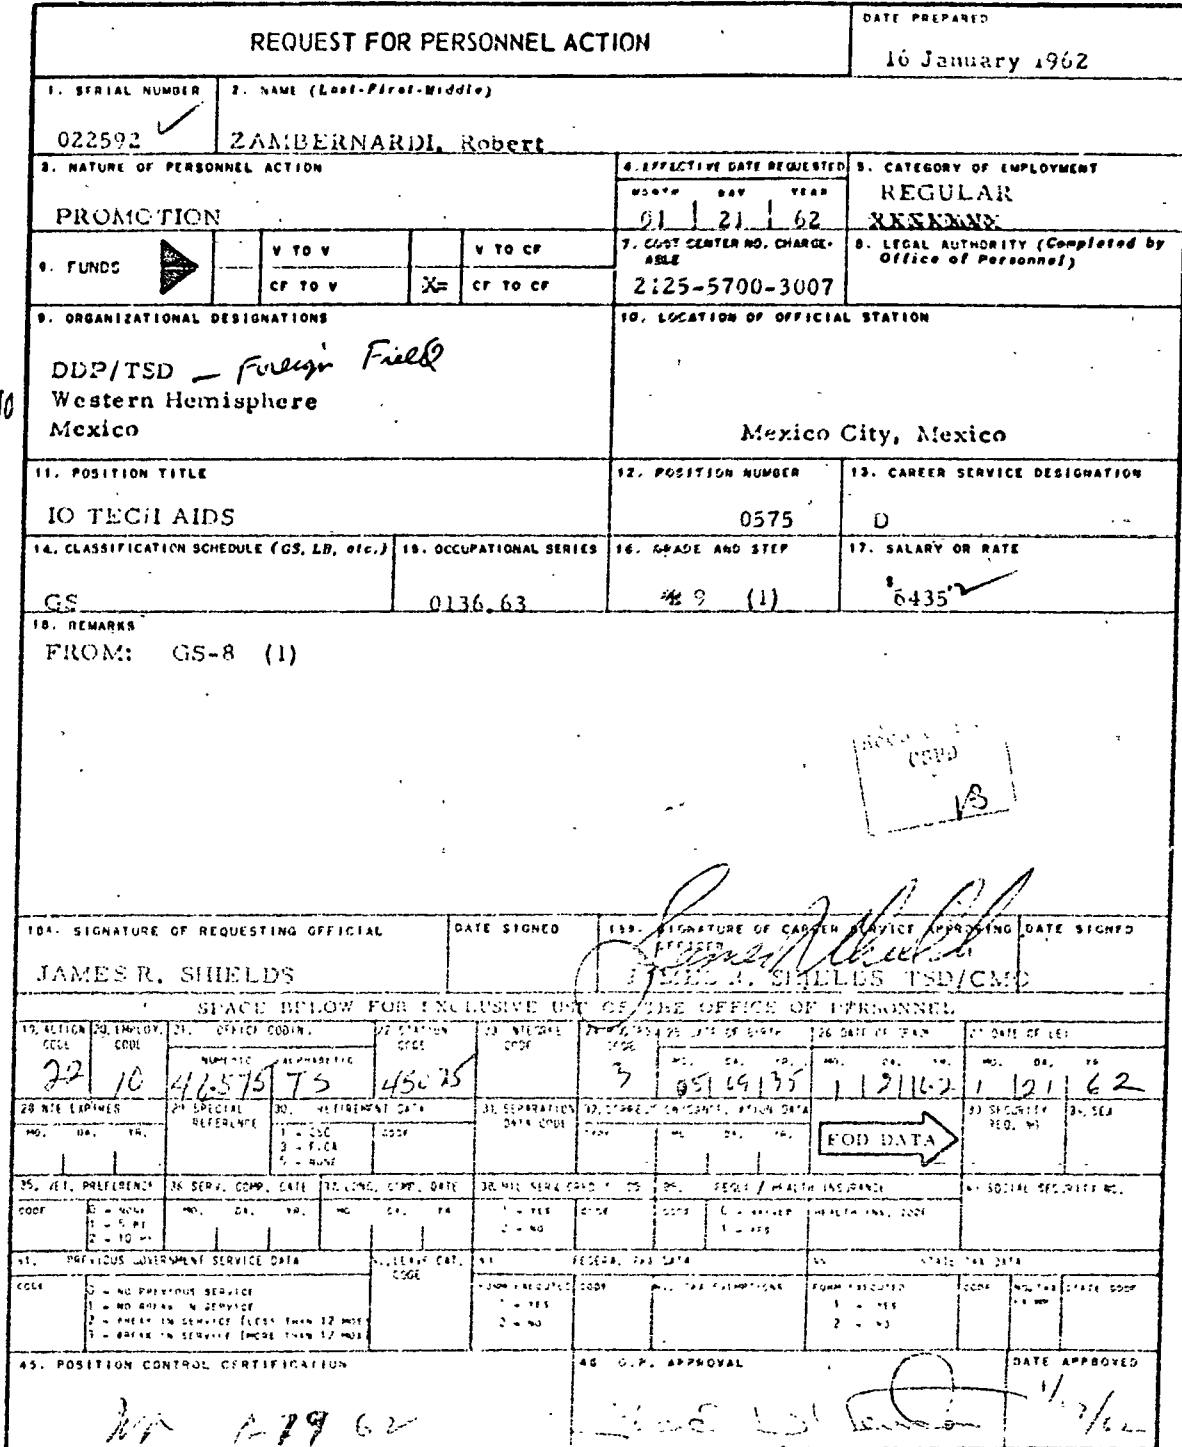 REQUEST FOR PERSONNEL ACTION
DATE PREPARED
16 January 1962
1. SERIAL NUMBER
022592
2. NAME (Last-First-Middle)
ZAMBERNARDI, Robert
3. NATURE OF PERSONNEL ACTION
PROMOTION
4. EFFECTIVE DATE REQUESTED
MONTH DAY YEAR
01 21 62
5. CATEGORY OF EMPLOYMENT
REGULAR
6. FUNDS
V TO V
V TO CF
CF TO V
X= CF TO CF
7. COST CENTER NO. CHARGE-
ABLE
2125-5700-3007
8. LEGAL AUTHORITY (Completed by
Office of Personnel)
9. ORGANIZATIONAL DESIGNATIONS
DDP/TSD - Foreign Field
Western Hemisphere
Mexico
10. LOCATION OF OFFICIAL STATION
Mexico City, Mexico
11. POSITION TITLE
IO TECH AIDS
12. POSITION NUMBER
0575
13. CAREER SERVICE DESIGNATION
D
14. CLASSIFICATION SCHEDULE (GS, LB, etc.)
GS
15. OCCUPATIONAL SERIES
0136.63
16. GRADE AND STEP
9 (1)
17. SALARY OR RATE
$6435
18. REMARKS
FROM: GS-8 (1)
CSPD
18A. SIGNATURE OF REQUESTING OFFICIAL
DATE SIGNED
JAMES R. SHIELDS
18B. SIGNATURE OF CAREER SERVICE APPROVING
OFFICER
DATE SIGNED
JAMES R. SHIELDS TSD/CMO
SPACE BELOW FOR EXCLUSIVE USE OF THE OFFICE OF PERSONNEL
19. ACTION
CODE
22
20. EMPLOY.
CODE
10
21. OFFICE CODING
NUMERIC ALPHABETIC
46575 TS
22. STATION
CODE
45075
23. INTEGREE
CODE
CODE
3
25. DATE OF BIRTH
MO. DA. YR.
26. DATE OF GRADE
MO. DA. YR.
1 21 62
27. DATE OF LEI
MO. DA. YR.
1 21 62
28. NTE EXPIRES
MO. DA. YR.
29. SPECIAL
REFERENCE
30. RETIREMENT DATA
1 - CSC
3 - FICA
5 - NONE
CODE
31. SEPARATION
DATA CODE
32. CORRECTION/CANCELLATION DATA
TYPE MO. DA. YR.
EOD DATA
33. SECURITY
REQ. NO.
34. SEX
35. VET. PREFERENCE
CODE
0 - NONE
1 - 5 PT
2 - 10 PT
36. SERV. COMP. DATE
MO. DA. YR.
37. LONG. COMP. DATE
MO. DA. YR.
1 - YES
2 - NO
CODE
39. FEGLI / HEALTH INSURANCE
CODE
0 - WAIVER
1 - YES
HEALTH INS. CODE
40. SOCIAL SECURITY NO.
41. PREVIOUS GOVERNMENT SERVICE DATA
CODE
0 - NO PREVIOUS SERVICE
1 - NO BREAK IN SERVICE
2 - BREAK IN SERVICE (LESS THAN 12 MOS)
3 - BREAK IN SERVICE (MORE THAN 12 MOS)
42. LEAVE CAT.
CODE
43. FEDERAL TAX DATA
FORM EXECUTED
1 - YES
2 - NO
CODE
NO. TAX EXEMPTIONS
44. STATE TAX DATA
FORM EXECUTED
1 - YES
2 - NO
CODE
STATE CODE
45. POSITION CONTROL CERTIFICATION
46. O.P. APPROVAL
DATE APPROVED